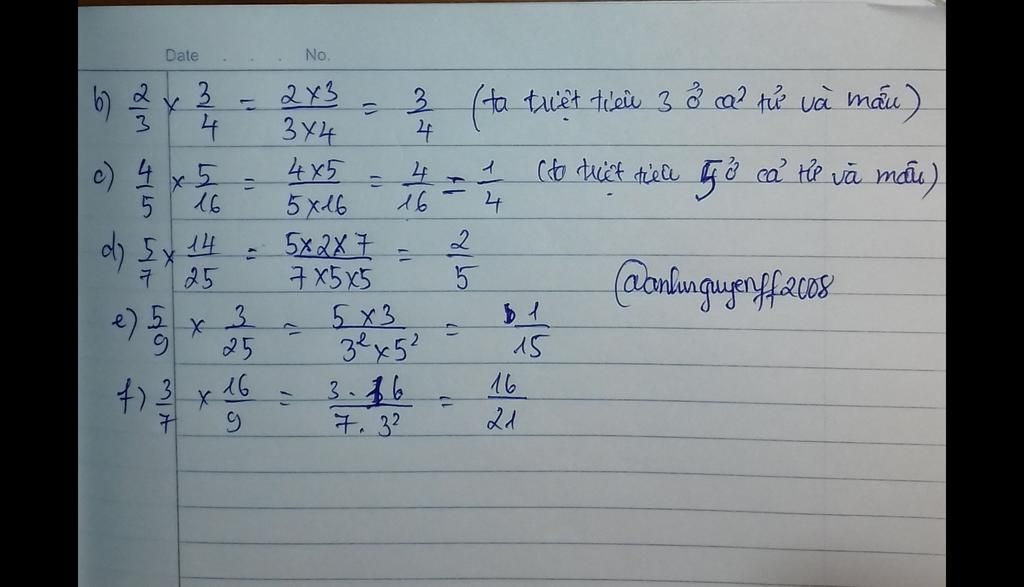 Date . . . No.
b) 2/3 × 3/4 = 2×3/3×4 = 3/4 (ta triệt tiêu 3 ở cả tử và mẫu)
c) 4/5 × 5/16 = 4×5/5×16 = 4/16 = 1/4 (ta triệt tiêu 5 ở cả tử và mẫu)
d) 5/7 × 14/25 = 5×2×7/7×5×5 = 2/5
@anhnguyenff2008
e) 5/9 × 3/25 = 5×3/3²×5² = 1/15
f) 3/7 × 16/9 = 3.16/7.3² = 16/21